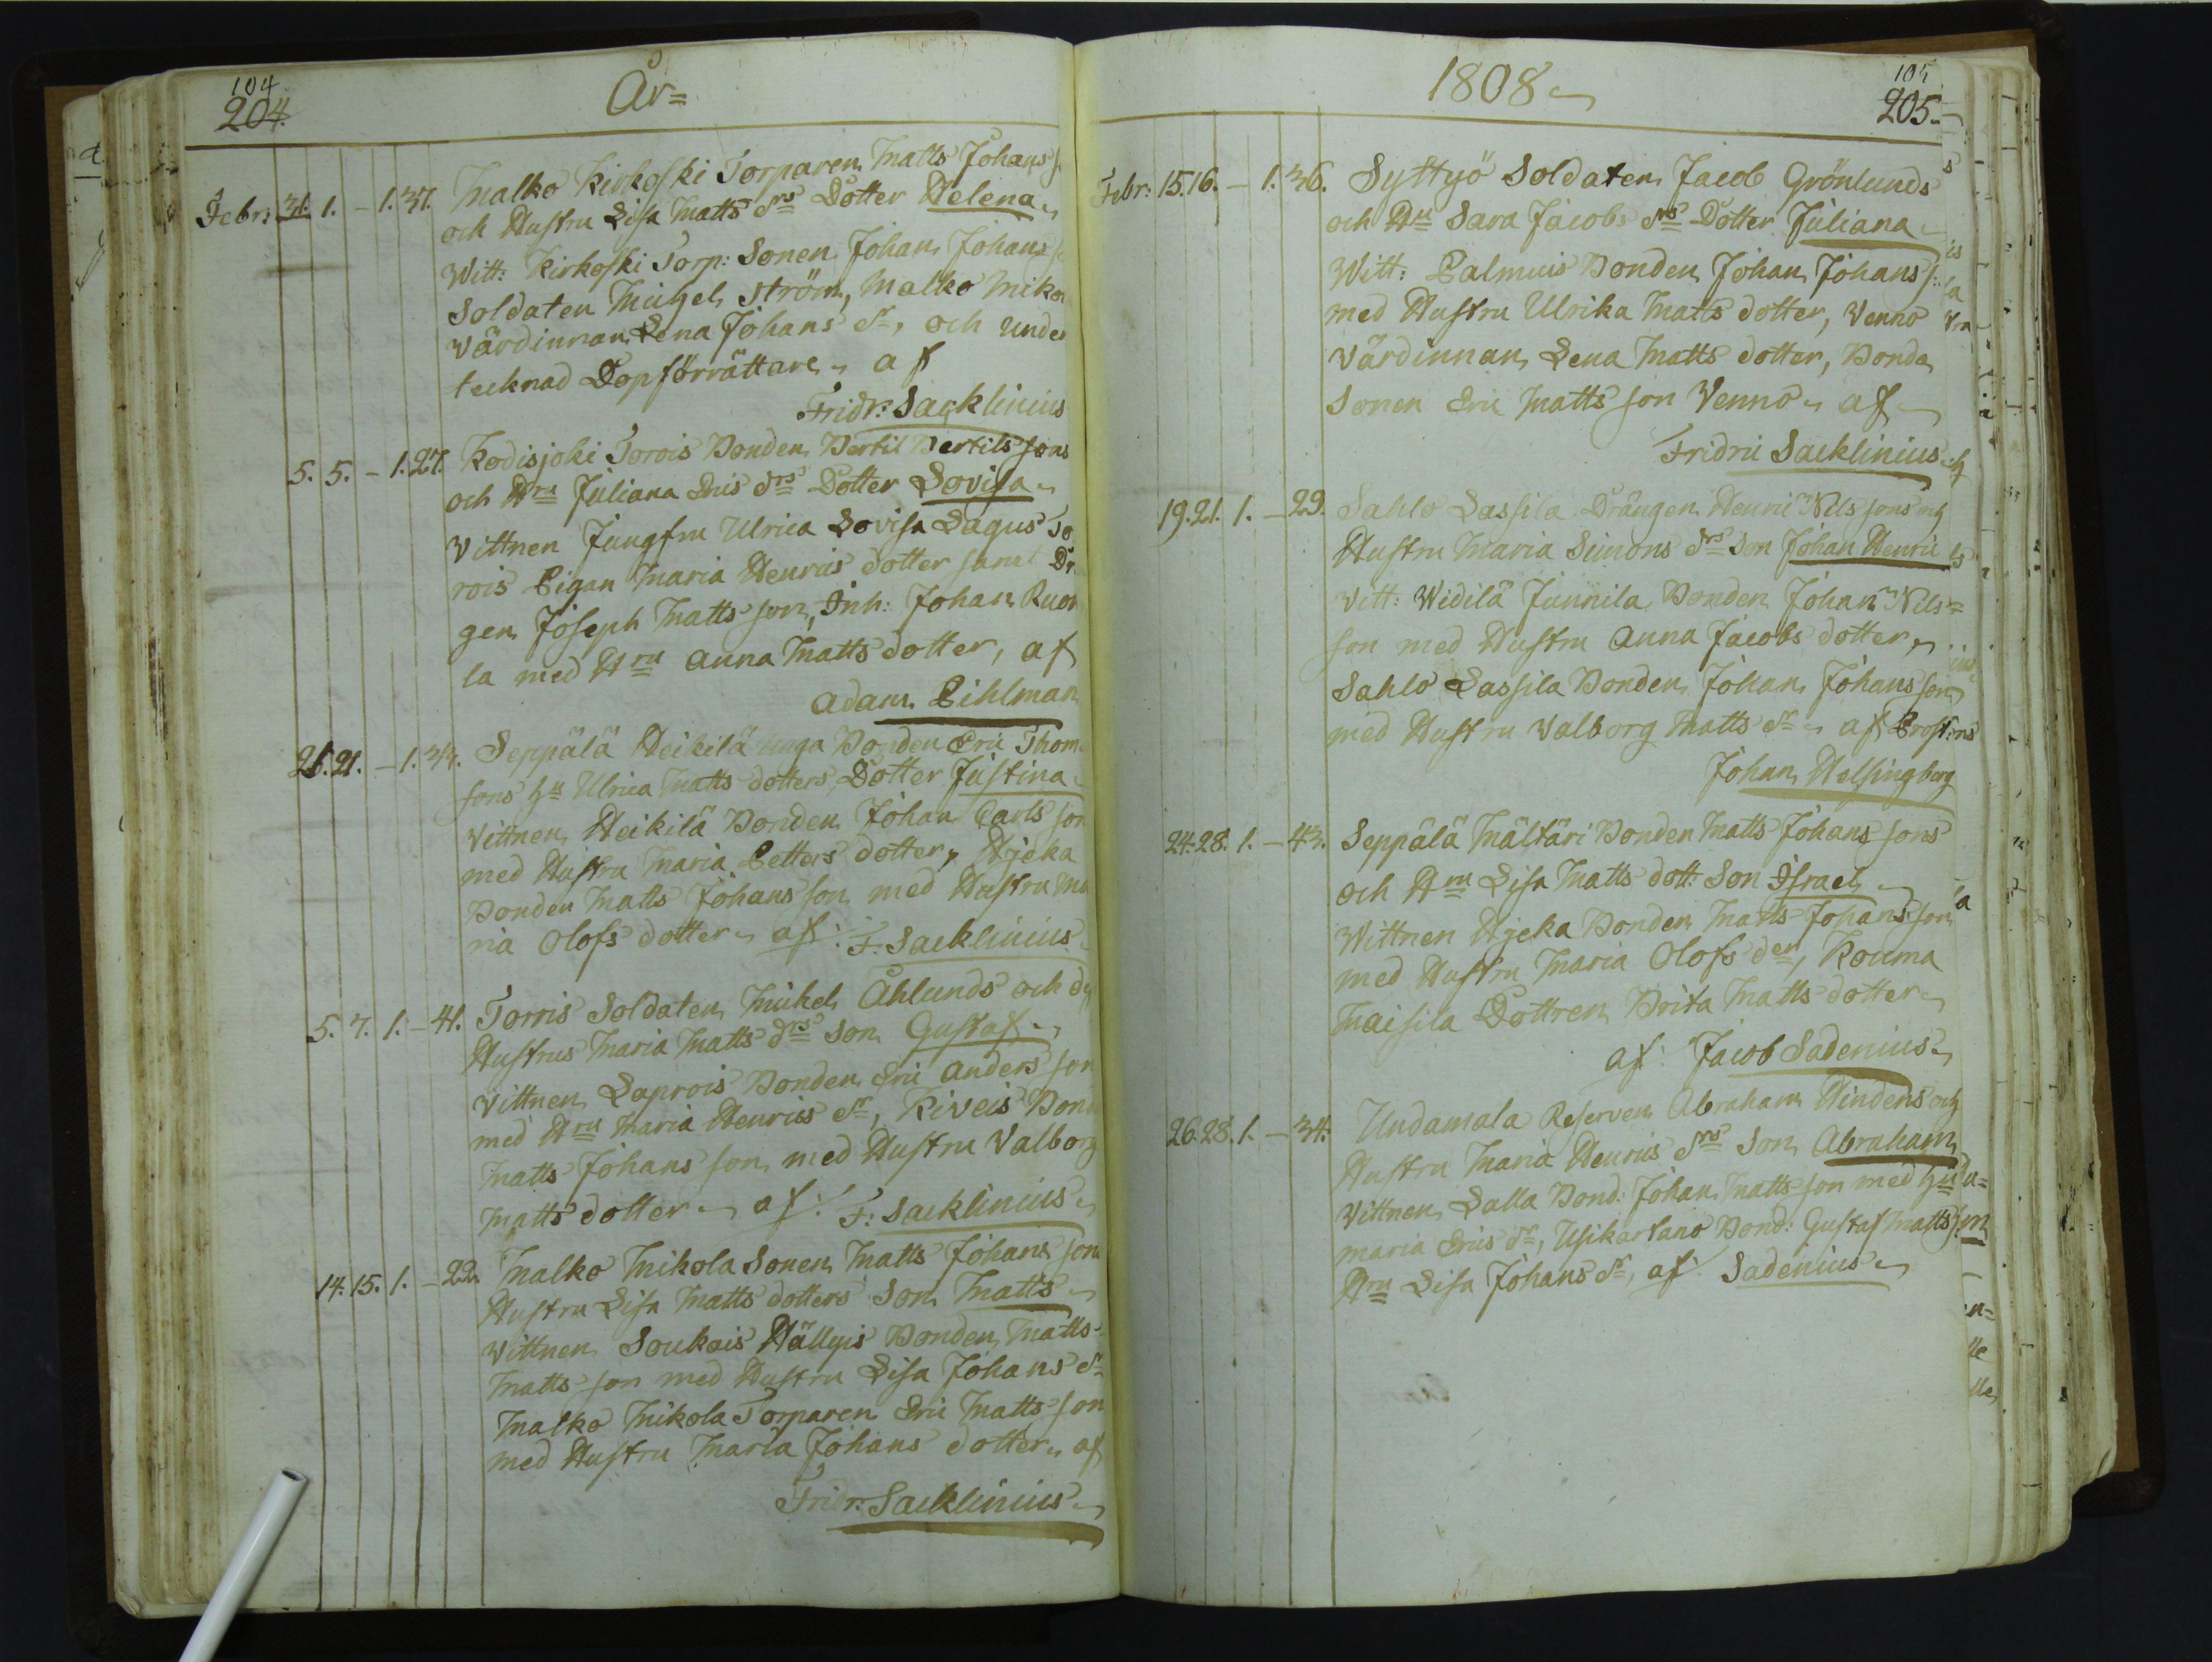 104
204.
År=
Febr: 31. 1. – 1. 37. Malko Kirkoski Torparen Matts Johans
och Hustru Lisa Matts drs Dotter Helena
Witt: Kirkoski Torp: Sonen Johan Johans
Soldaten Michel Ström, Malko Miko
värdinnan Lena Johans dr, och unde
tecknad Dopförrättare af
Fridr: Sacklinius
5. 5. – 1. 27. Kodisjoki Torois Bonden Bertil Bertils sons
och Hru Juliana Erics drs Dotter Lovisa
Vittnen Jungfru Ulrica Lovisa Lagus To
rois Pigan Maria Henrics dotter samt Dr
gen Joseph Matts son, Inh: Johan Ruok
la med Hru Anna Matts dotter, af
Adam Pihlman
21. – 1. Seppälä Heikilä unga Bonden Eric Thom
sons hu Ulrica Matts dotters Dotter Justina
Vittnen Heikilä Bonden Johan Carls son
med Hustru Maria Petters dotter, Hjeka
Bonden Matts Johans son med Hustru Ma
ria Olofs dotter af: F: Sacklinius
5. 7. 1. – 41. Torris Soldaten Michel Åhlunds och d
Hustrus Maria Matts drs Son Gustaf
Vittnen Laprois Bonden Eric Anders son
med Hru Maria Henrics dr, Riveis Bon
Matts Johans son med Hustru Valborg
Matts dotter af: F: Sacklinius
14. 15. 1. – 22. Malko Mikola Sonen Matts Johans sons
Hustru Lisa Matts dotters Son Matts
Vittnen Soukais Hällyis Bonden Matts
Matts son med Hustru Lisa Johans dr
Malko Mikola Torparen Eric Matts son
med Hustru Maria Johans dotter, af
Fridr: Sacklinius
1808
105
205.
Febr: 15. 16. – 1. 36. Syttyö Soldaten Jacob Grönlunds
och Hu Sara Jacobs drs Dotter Juliana
Witt: Palmuis Bonden Johan Johans s:
med Hustru Ulrika Matts dotter, Venno
Värdinnan Lena Matts dotter, Bonde
Sonen Eric Matts son Venno af
Fridric Sacklinius
19. 21. 1. – 29. Sahlo Lassila Drängen Henric Nils sons och
Hustru Maria Simons drs Son Johan Henric
Vitt: Widilä Junnila Bonden Johan Nils=
son med Hustru Anna Jacobs dotter,
Sahlo Lassila Bonden Johan Johans son
med Hustru Valborg Matts dr af Prosten
Johan Helsingberg
24. 28. 1. – 43. Seppälä Mältäri Bonden Matts Johans sons
och Hru Lisa Matts dott: Son Israel
Wittnen Hjeka Bonden Matts Johans son
med Hustru Maria Olofs der, Kouma
Maisila Dottren Brita Matts dotter
af: Jacob Sadenius
26. 28. 1. – 34. Undamala Reserven Abraham Hindens och
Hustru Maria Henrics drs Son Abraham
Vittnen Salla Bond: Johan Matts son med hu
Maria Erics dr, Usikartano Bond: Gustaf Matts son m
Hru Lisa Johans dr, af: Sadenius